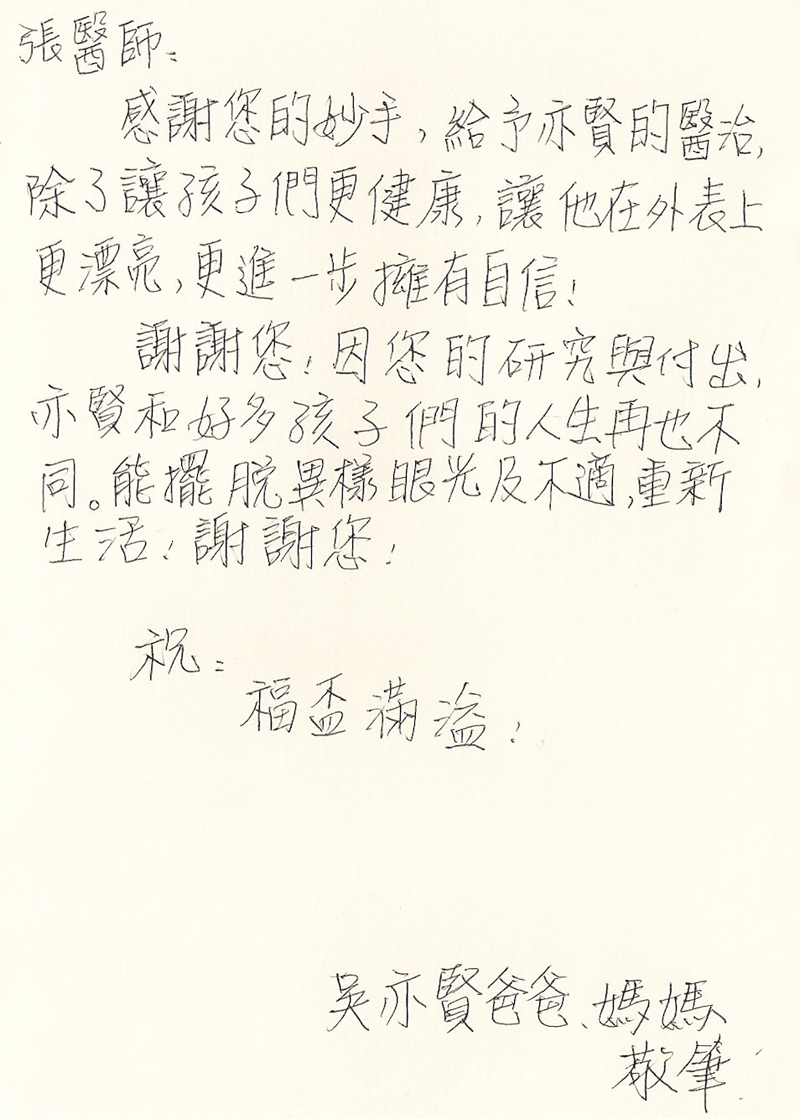 張醫師：
感謝您的妙手，給予亦賢的醫治，
除了讓孩子們更健康，讓他在外表上
更漂亮，更進一步擁有自信！
謝謝您！因您的研究與付出，
亦賢和好多孩子們的人生再也不
同。能擺脫異樣眼光及不適，重新
生活！謝謝您！
祝：
福盃滿溢！
吳亦賢爸爸、媽媽
敬肇